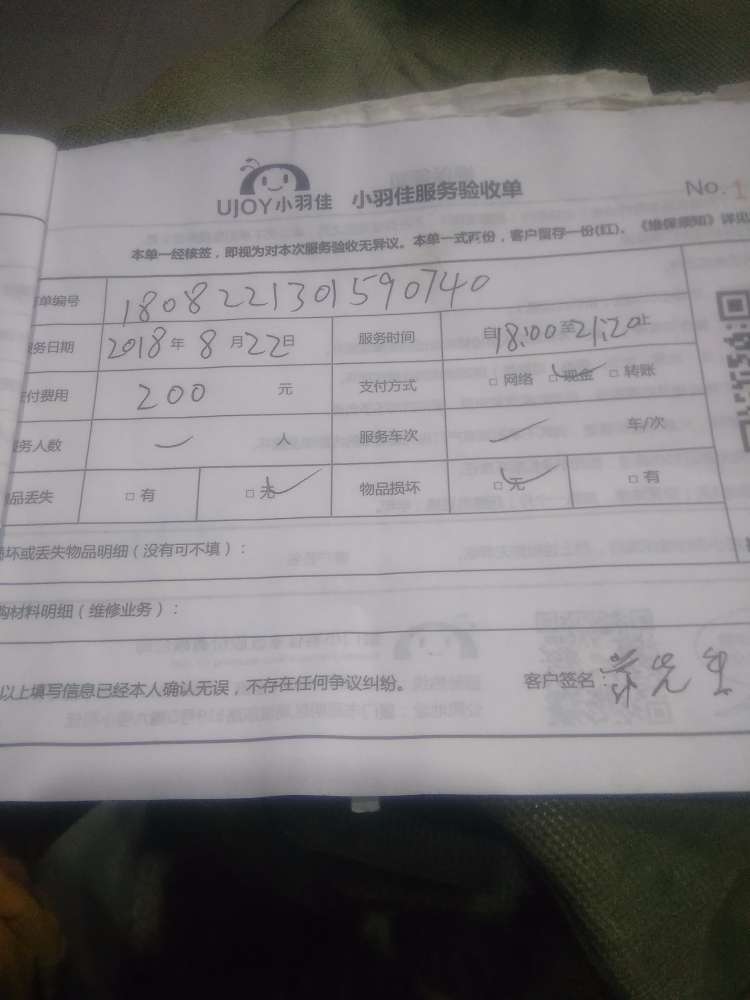 UJOY小羽佳 小羽佳服务验收单 No.1
本单一经核签，即视为对本次服务验收无异议。本单一式两份，客户留存一份(红)。《维保须知》详见
单编号 1808221301590740
服务日期 2018年8月22日 服务时间 自18:00至21:20止
付费用 200元 支付方式 □网络 □现金 □转账
务人数 一 人 服务车次 一 车/次
品丢失 □有 □无 物品损坏 □无 □有
坏或丢失物品明细（没有可不填）：
购材料明细（维修业务）：
以上填写信息已经本人确认无误，不存在任何争议纠纷。 客户签名：先生